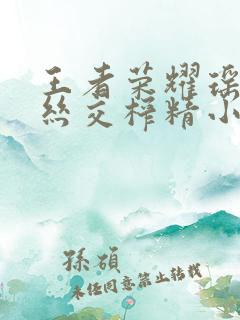 王者荣耀瑶
丝交榨精小
孫碩
未经同意禁止转载